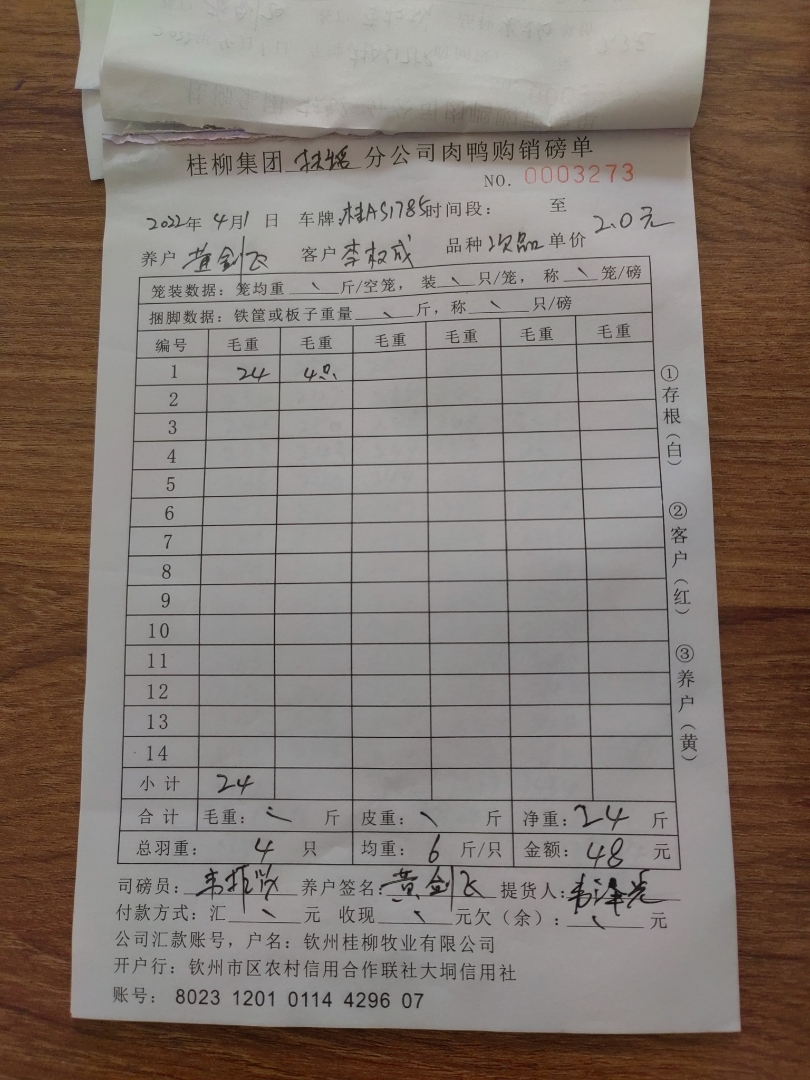 桂柳集团 扶绥 分公司肉鸭购销磅单
NO. 0003273
2022年 4月1日 车牌:桂AS1785 时间段: 至
养户 黄剑飞 客户 李权成 品种 次品 单价 2.0元
笼装数据: 笼均重 、 斤/空笼, 装 、 只/笼, 称 、 笼/磅
捆脚数据: 铁筐或板子重量 、 斤, 称 、 只/磅
编号 毛重 毛重 毛重 毛重 毛重 毛重
1 24 4只
2
3
4
5
6
7
8
9
10
11
12
13
14
小计 24
合计 毛重: 、 斤 皮重: 、 斤 净重: 24 斤
总羽重: 4 只 均重: 6 斤/只 金额: 48 元
司磅员: 养户签名: 黄剑飞 提货人: 韦泽光
付款方式: 汇 、 元 收现 、 元欠(余): 、 元
公司汇款账号, 户名: 钦州桂柳牧业有限公司
开户行: 钦州市区农村信用合作联社大垌信用社
账号: 8023 1201 0114 4296 07
①存根(白)
②客户(红)
③养户(黄)